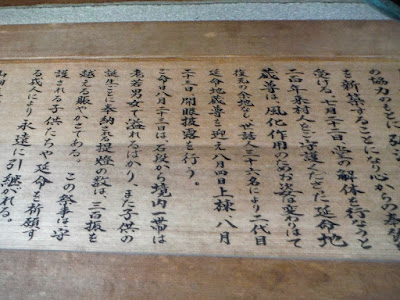 の協力のもとに
を新築することになり心からの
受ける。七月二十二日堂の解体を行なうと
二百年来村人とこ守護いたださた延命地
蔵菩は、風化作用のため姿は変りはて
復元の余地なし、世話人三十六名により二代目
延命地蔵菩を迎え八月四日上棟、八月
二十二日、開眼披露を行う。
この日八月二十三日は、石段から境内一帯は
老若男女で溢れるばかり、また子供の
誕生ごとに奉納さる提燈の数は、三百振を
越える賑やかさである。この祭事は守
護される子供たちや延命を祈願す
る成人により永遠に引継がれる。